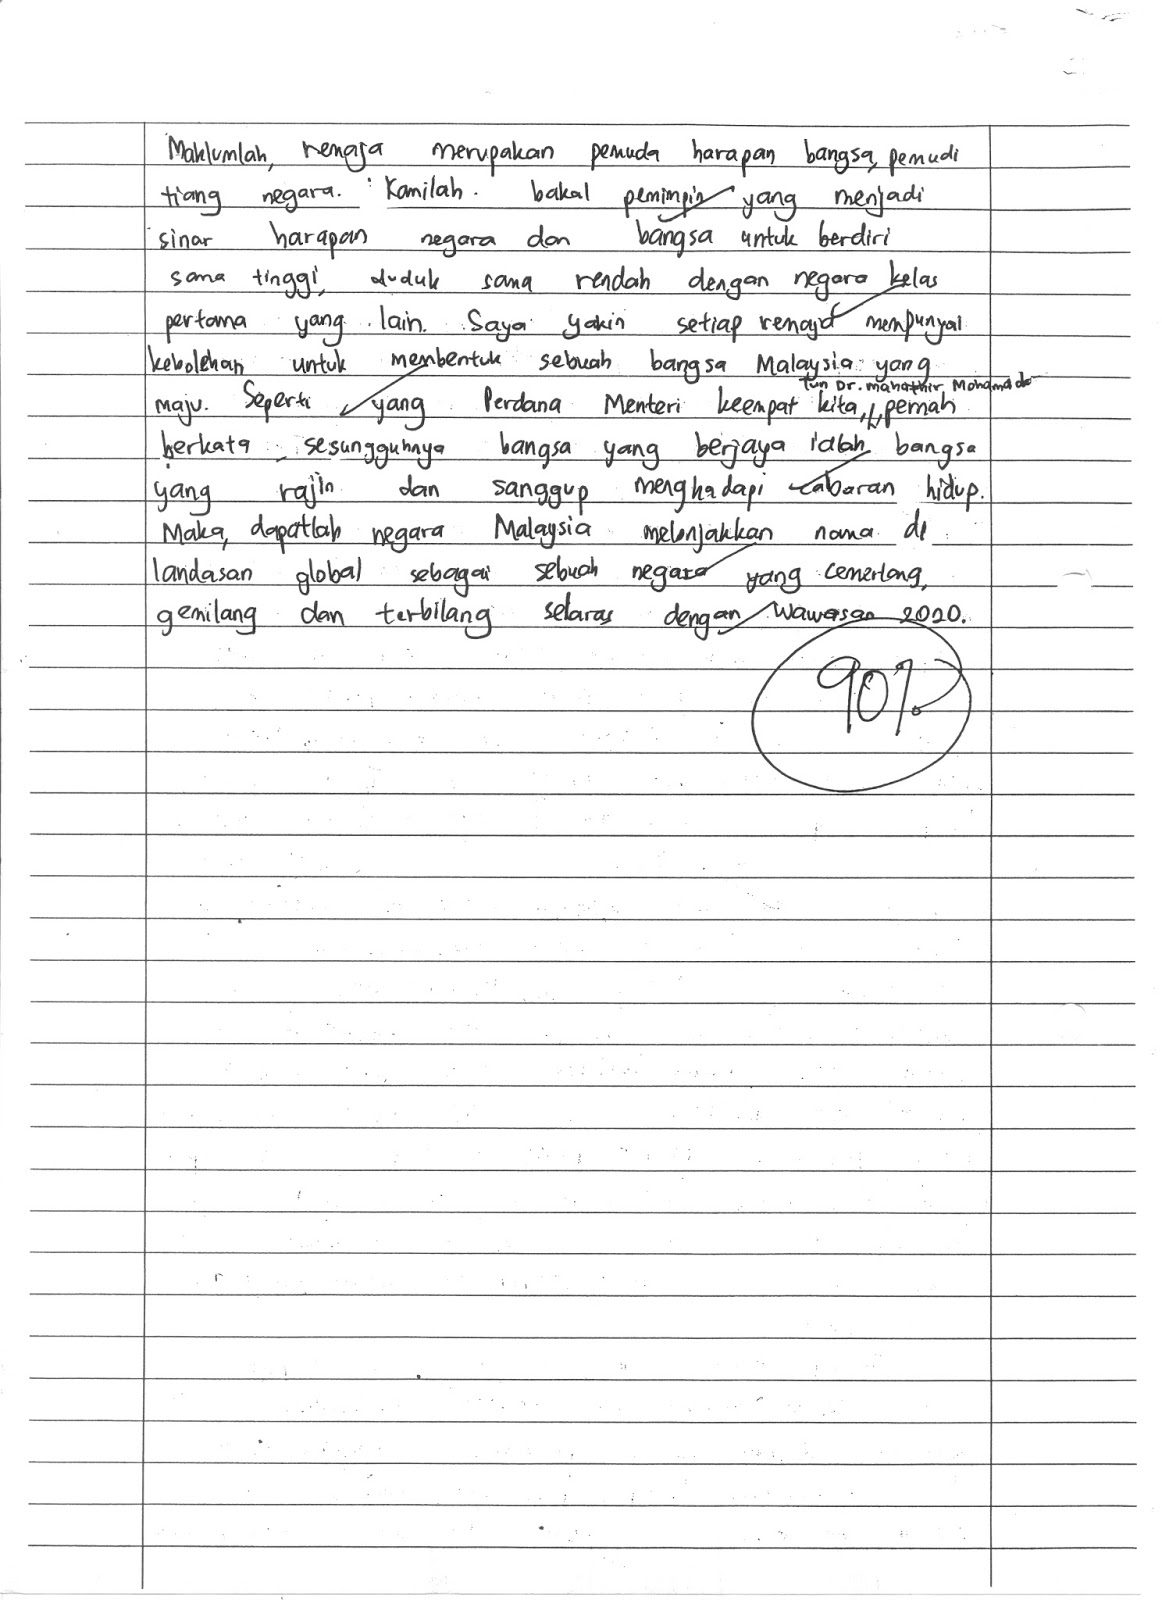 Maklumlah, remaja merupakan pemuda harapan bangsa, pemudi
tiang negara. Kamilah bakal pemimpin yang menjadi
sinar harapan negara dan bangsa untuk berdiri
sama tinggi, duduk sama rendah dengan negara kelas
pertama yang lain. Saya yakin setiap remaja mempunyai
kebolehan untuk membentuk sebuah bangsa Malaysia yang
Tun Dr. Mahathir Mohamad
maju. Seperti yang Perdana Menteri keempat kita, pernah
berkata sesungguhnya bangsa yang berjaya ialah bangsa
yang rajin dan sanggup menghadapi cabaran hidup.
Maka, dapatlah negara Malaysia melonjakkan nama di
landasan global sebagai sebuah negara yang cemerlang,
gemilang dan terbilang selaras dengan Wawasan 2020.
90%